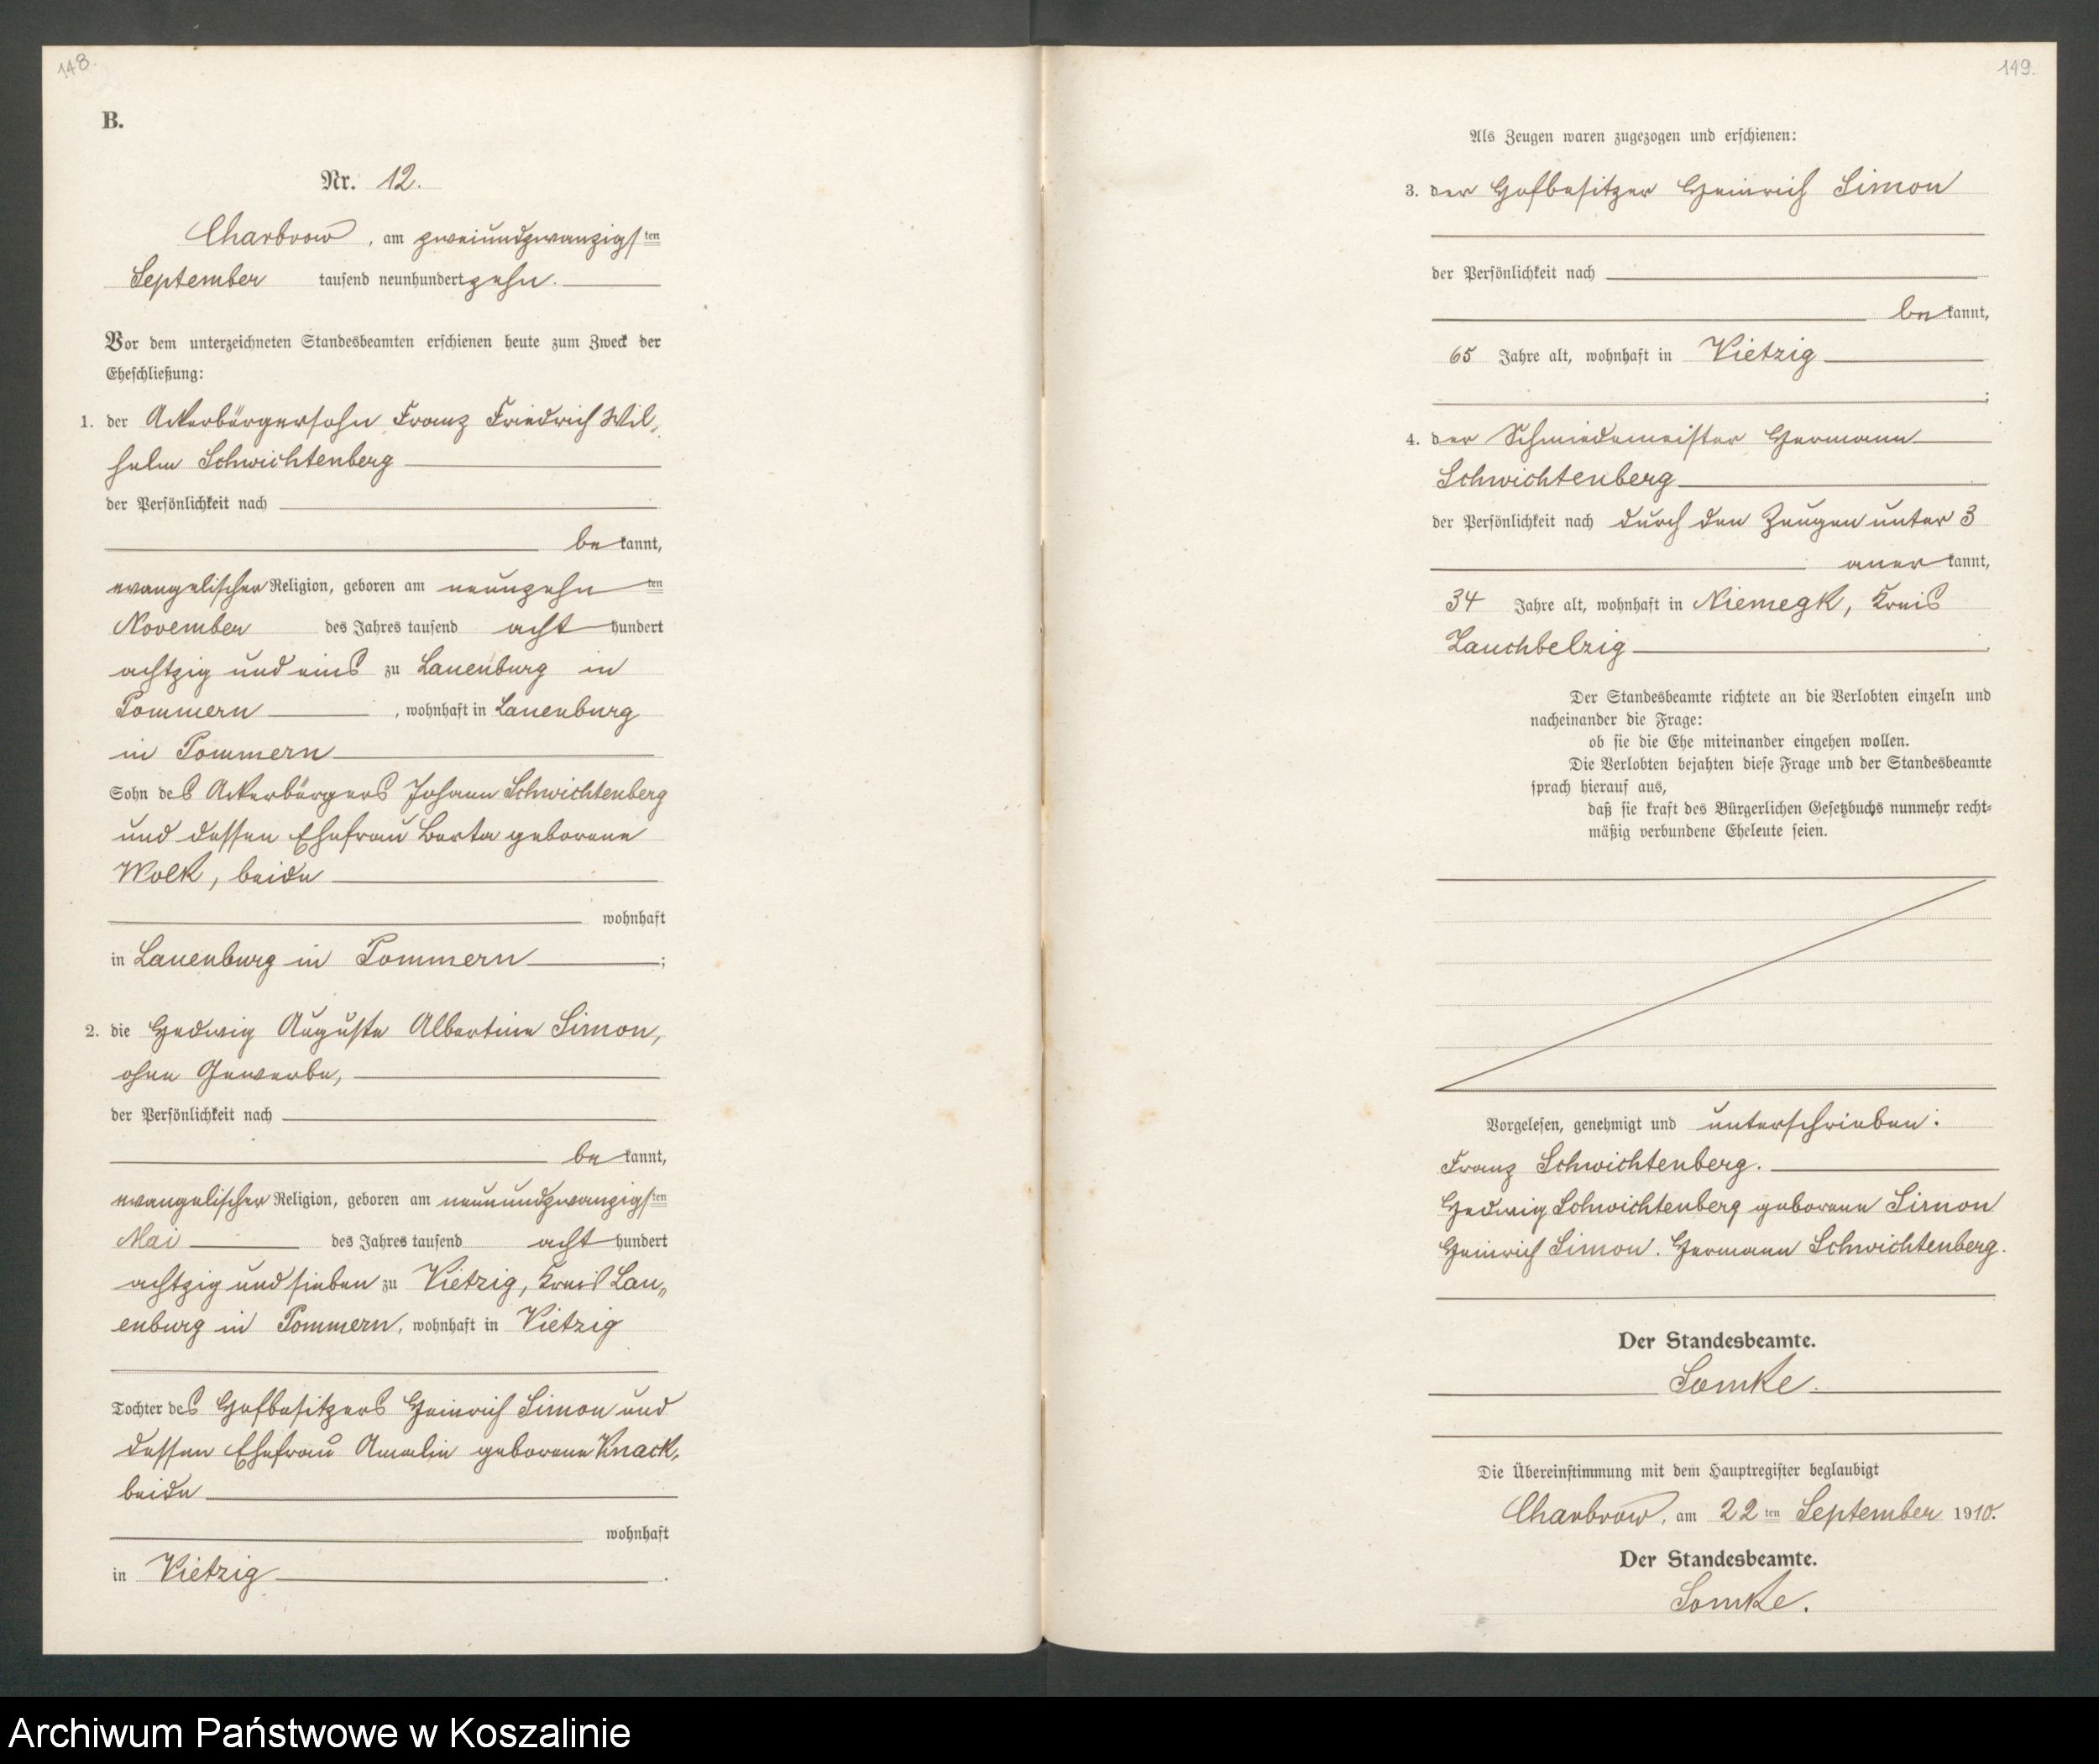 148.
B.
Nr. 12.
Charbrow, am zweiundzwanzigsten
September tausend neunhundert zehn.
Vor dem unterzeichneten Standesbeamten erschienen heute zum Zweck der
Eheschließung:
1. der Ackerbürgersohn Franz Friedrich Wil„
helm Schwichtenberg
der Persönlichkeit nach
be kannt,
evangelischer Religion, geboren am neunzehn ten
November des Jahres tausend acht hundert
achtzig und eins zu Lauenburg in
Pommern, wohnhaft in Lauenburg
in Pommern
Sohn des Ackerbürgers Johann Schwichtenberg
und dessen Ehefrau Berta geborene
Wolk, beide
wohnhaft
in Lauenburg in Pommern;
2. die Hedwig Auguste Albertine Simon,
ohne Gewerbe,
der Persönlichkeit nach
be kannt,
evangelischer Religion, geboren am neunundzwanzigsten
Mai des Jahres tausend acht hundert
achtzig und sieben zu Vietzig, Kreis Lau„
enburg in Pommern, wohnhaft in Vietzig
Tochter des Hofbesitzers Heinrich Simon und
dessen Ehefrau Amalie geborene Knack,
beide
wohnhaft
in Vietzig.
149.
Als Zeugen waren zugezogen und erschienen:
3. der Hofbesitzer Heinrich Simon
der Persönlichkeit nach
be kannt,
65 Jahre alt, wohnhaft in Vietzig
;
4. der Schmiedemeister Hermann
Schwichtenberg
der Persönlichkeit nach durch den Zeugen unter 3
aner kannt,
34 Jahre alt, wohnhaft in Niemegk, Kreis
Zauchbelzig.
Der Standesbeamte richtete an die Verlobten einzeln und
nacheinander die Frage:
ob sie die Ehe miteinander eingehen wollen.
Die Verlobten bejahten diese Frage und der Standesbeamte
sprach hierauf aus,
daß sie kraft des Bürgerlichen Gesetzbuchs nunmehr recht-
mäßig verbundene Eheleute seien.
Vorgelesen, genehmigt und unterschrieben:
Franz Schwichtenberg.
Hedwig Schwichtenberg geborene Simon
Heinrich Simon. Hermann Schwichtenberg.
Der Standesbeamte.
Somke.
Die Übereinstimmung mit dem Hauptregister beglaubigt
Charbrow, am 22 ten September 1910.
Der Standesbeamte.
Somke.
Archiwum Państwowe w Koszalinie